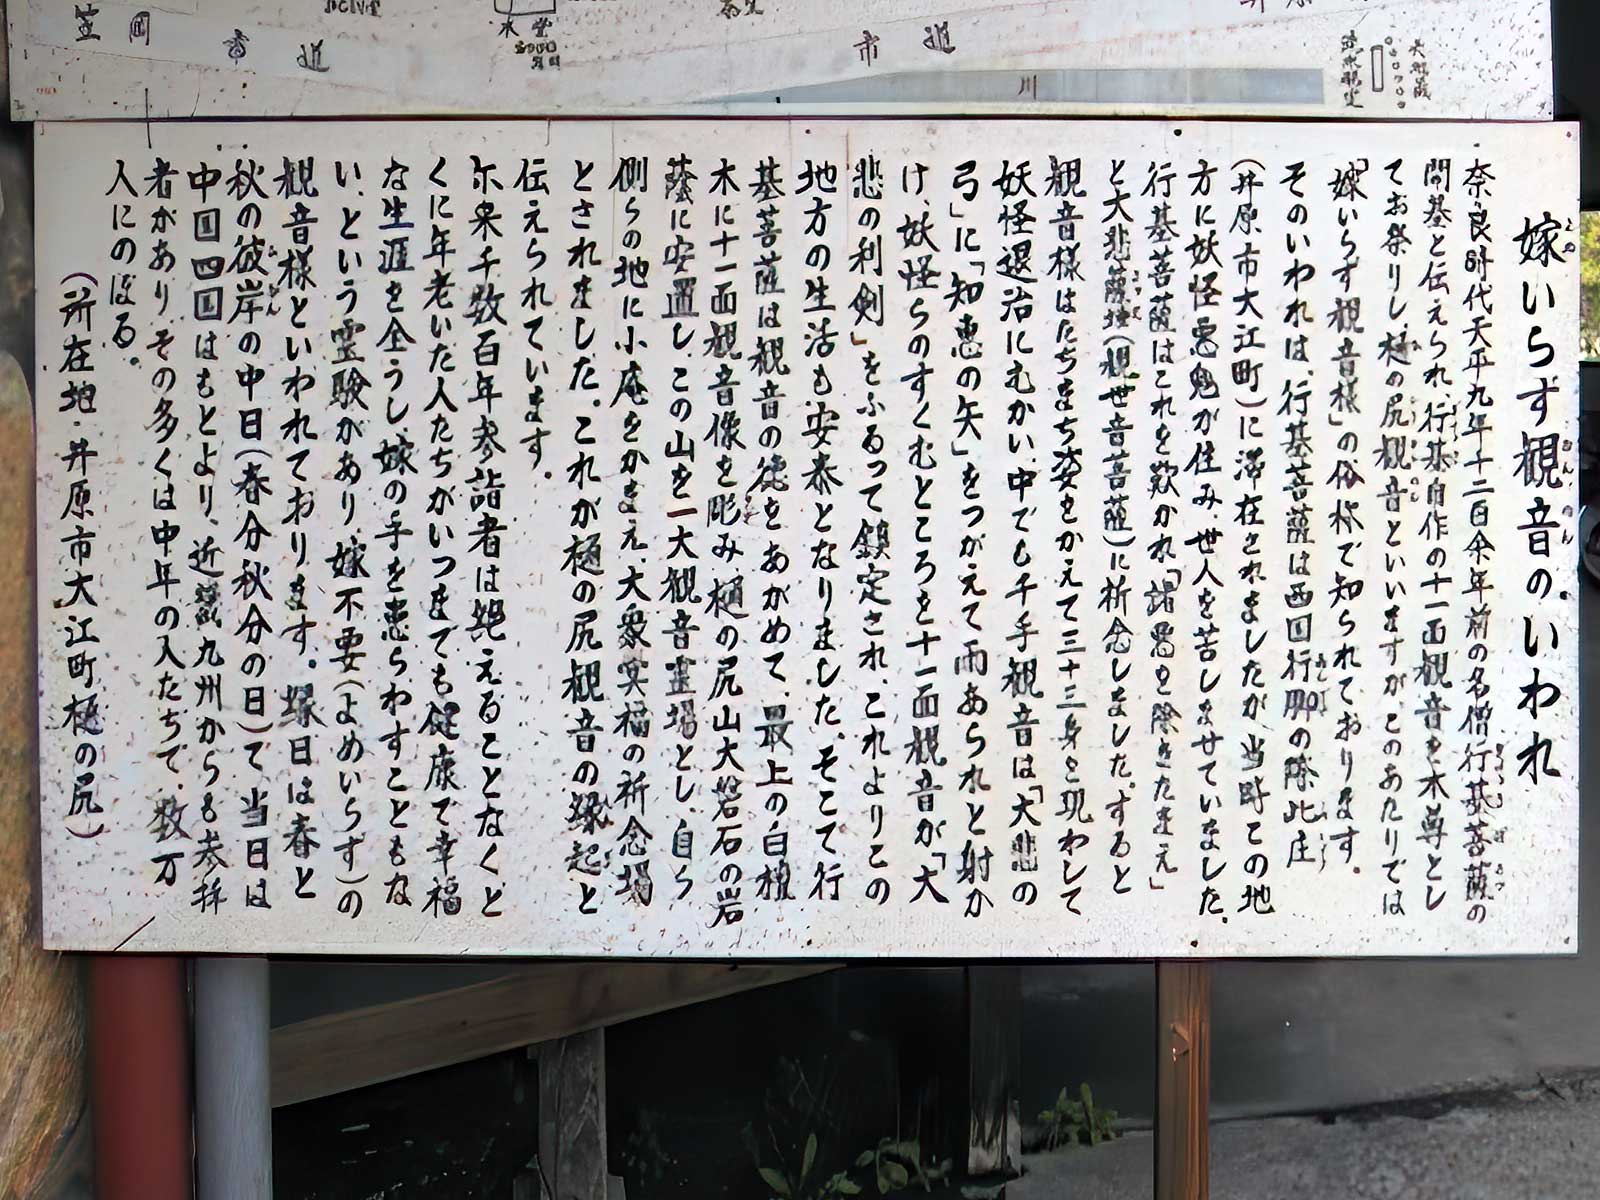 笠岡
市道
市道
川
嫁いらず観音のいわれ
奈良時代天平九年十二百余年前の名僧行基菩薩の
開基と伝えられ、行基自作の十一面観音を本尊とし
てお祭りし、樋の尻観音といいますが、このあたりでは
「嫁いらず観音様」の俗称で知られております。
そのいわれは、行基菩薩は西国行脚の際此庄
(井原市大江町)に滞在されましたが当時この地
方に妖怪悪鬼が住み、世人を苦しませていました。
行基菩薩はこれを歎かれ「諸悪を除きたまえ」
と大悲薩埵(観世音菩薩)に祈念しました。すると
観音様はたちまち姿をかえて三十三身を現わして
妖怪退治にむかい、中でも千手観音は「大悲の
弓」に「知恵の矢」をつがえて雨あられと射か
け、妖怪らのすくむところを十一面観音が「大
悲の利剣」をふるって鎮定され、これよりこの
地方の生活も安泰となりました。そこで行
基菩薩は観音の徳をあがめて、最上の白檀
木に十一面観音像を彫み、樋の尻山大磐石の岩
蔭に安置し、この山を一大観音霊場とし、自ら
側らの地に小庵をかまえ、大衆冥福の祈念場
とされました。これが樋の尻観音の縁起と
伝えられています。
尓来千数百年参詣者は絶えることなくと
くに年老いた人たちがいつまでも健康で幸福
な生涯を全うし、嫁の手を患らわすこともな
い、という霊験があり、嫁不要(よめいらず)の
観音様といわれております。縁日は春と
秋の彼岸の中日(春分秋分の日)で当日は
中国四国はもとより、近畿九州からも参拝
者があり、その多くは中年の人たちで、数万
人にのぼる。
(所在地・井原市大江町樋の尻)